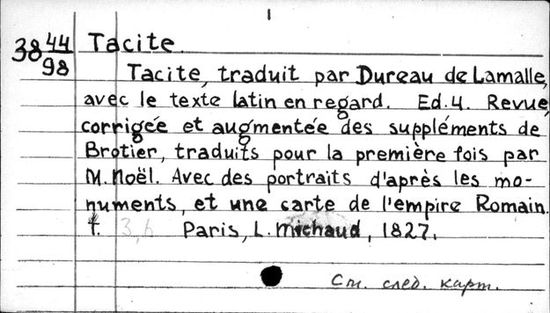 38 44/98 Tacite.
Tacite, traduit par Dureau de Lamalle,
avec le texte latin en regard. Ed. 4. Revue,
corrigée et augmentée des suppléments de
Brotier, traduits pour la première fois par
M. Noël. Avec des portraits d'après les mo-
numents, et une carte de l'empire Romain.
t. 3,6 Paris, L. Michaud, 1827.
См. след. карт.